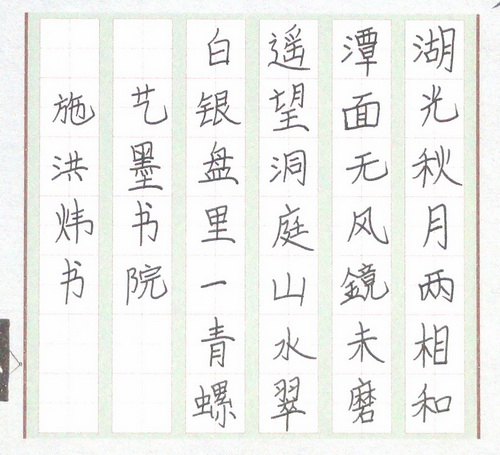 湖光秋月两相和
潭面无风鏡未磨
遥望洞庭山水翠
白银盘里一青螺
艺墨书院
施洪炜书